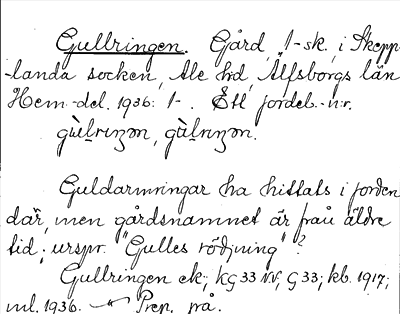 Gullringen. Gård, 1-sk, i Skepp-
-landa socken, Ale hd, Älfsborgs län
Hem.-del. 1936: 1-. Ett jordeb.-nr.
gùl̥riŋən, gùl̥riŋən.
Guldarmringar ha hittats i jorden
där, men gårdsnamnet är från äldre
tid; urspr. "Gulles rödjning"?
Gullringen ek; kG 33 NV; G 33; kb. 1917;
ml. 1936. — Prep. på.